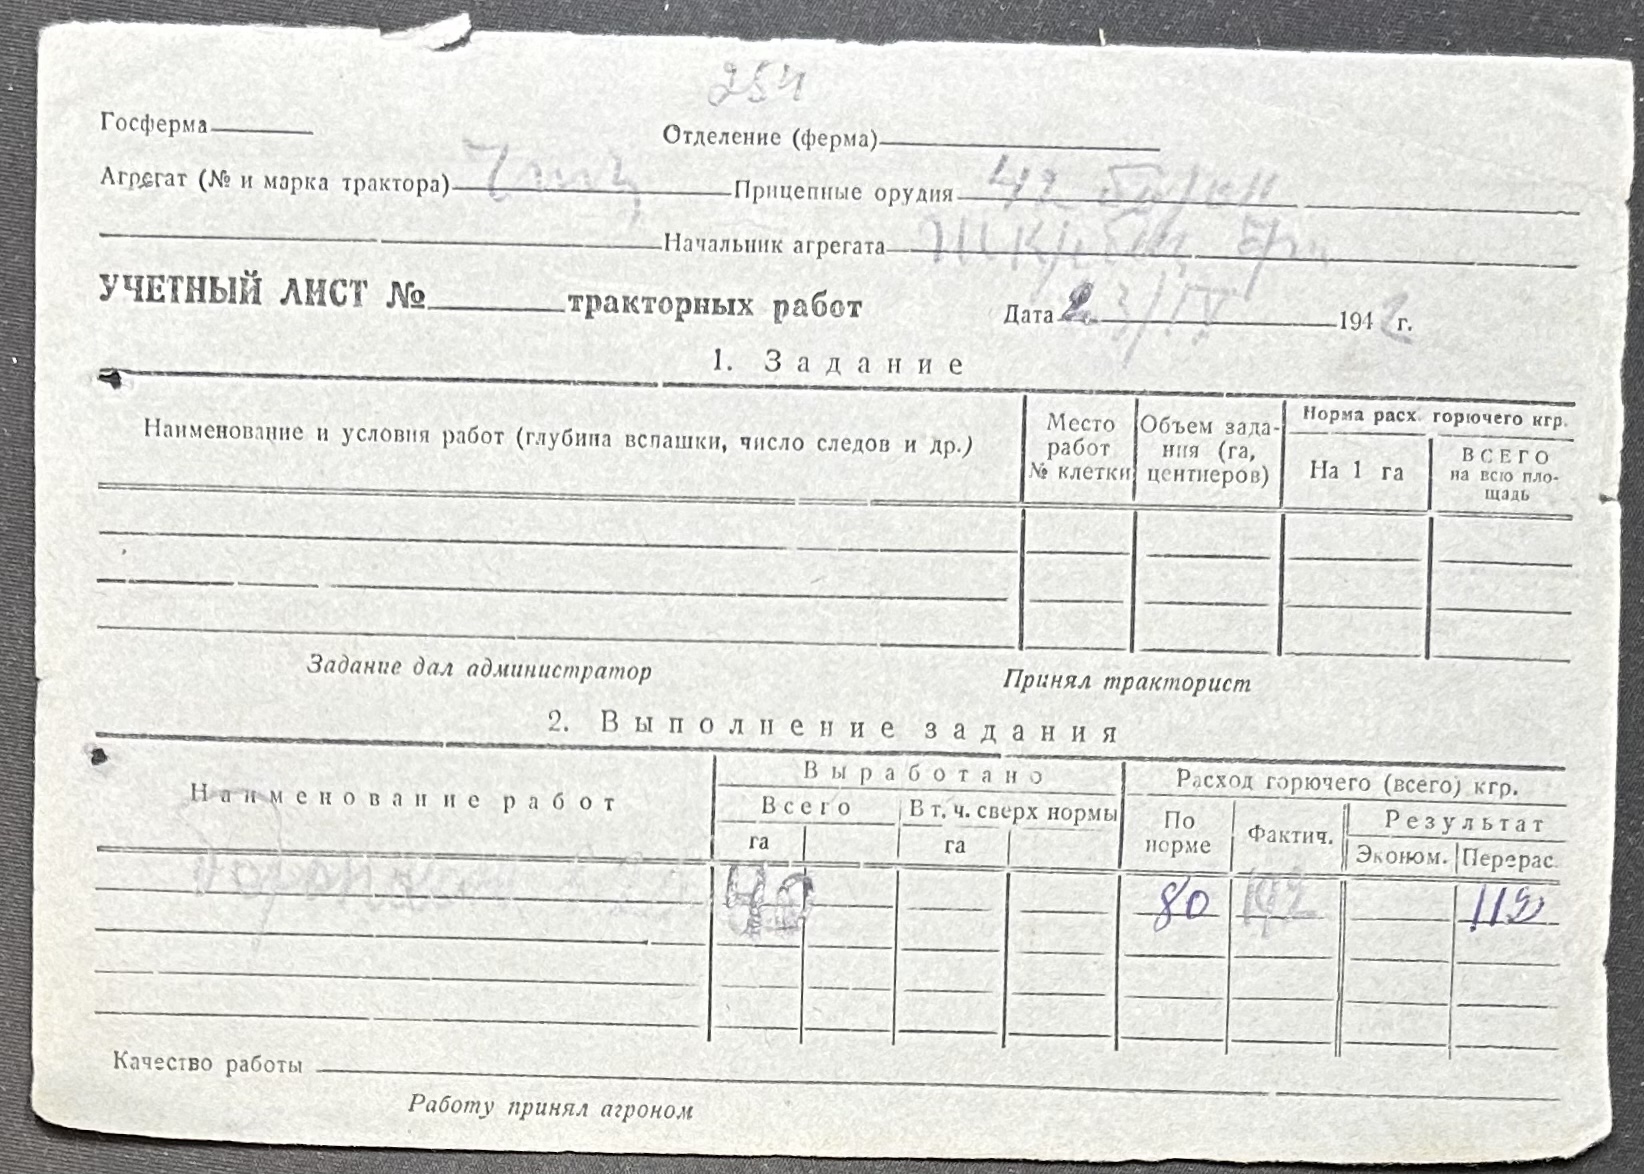 254
Госферма
Отделение (ферма)
Агрегат (№ и марка трактора)
Прицепные орудия 42 борон
Начальник агрегата
УЧЕТНЫЙ ЛИСТ № тракторных работ
Дата 23/IV 1942 г.
1. Задание
Наименование и условия работ (глубина вспашки, число следов и др.)
Место работ № клетки
Объем задания (га, центнеров)
Норма расх. горючего кгр.
На 1 га
ВСЕГО на всю площадь
Задание дал администратор
Принял тракторист
2. Выполнение задания
Наименование работ
Выработано
Расход горючего (всего) кгр.
Всего
В т. ч. сверх нормы
По норме
Фактич.
Результат
га
га
Эконом.
Перерас.
40 80 192 112
Качество работы
Работу принял агроном